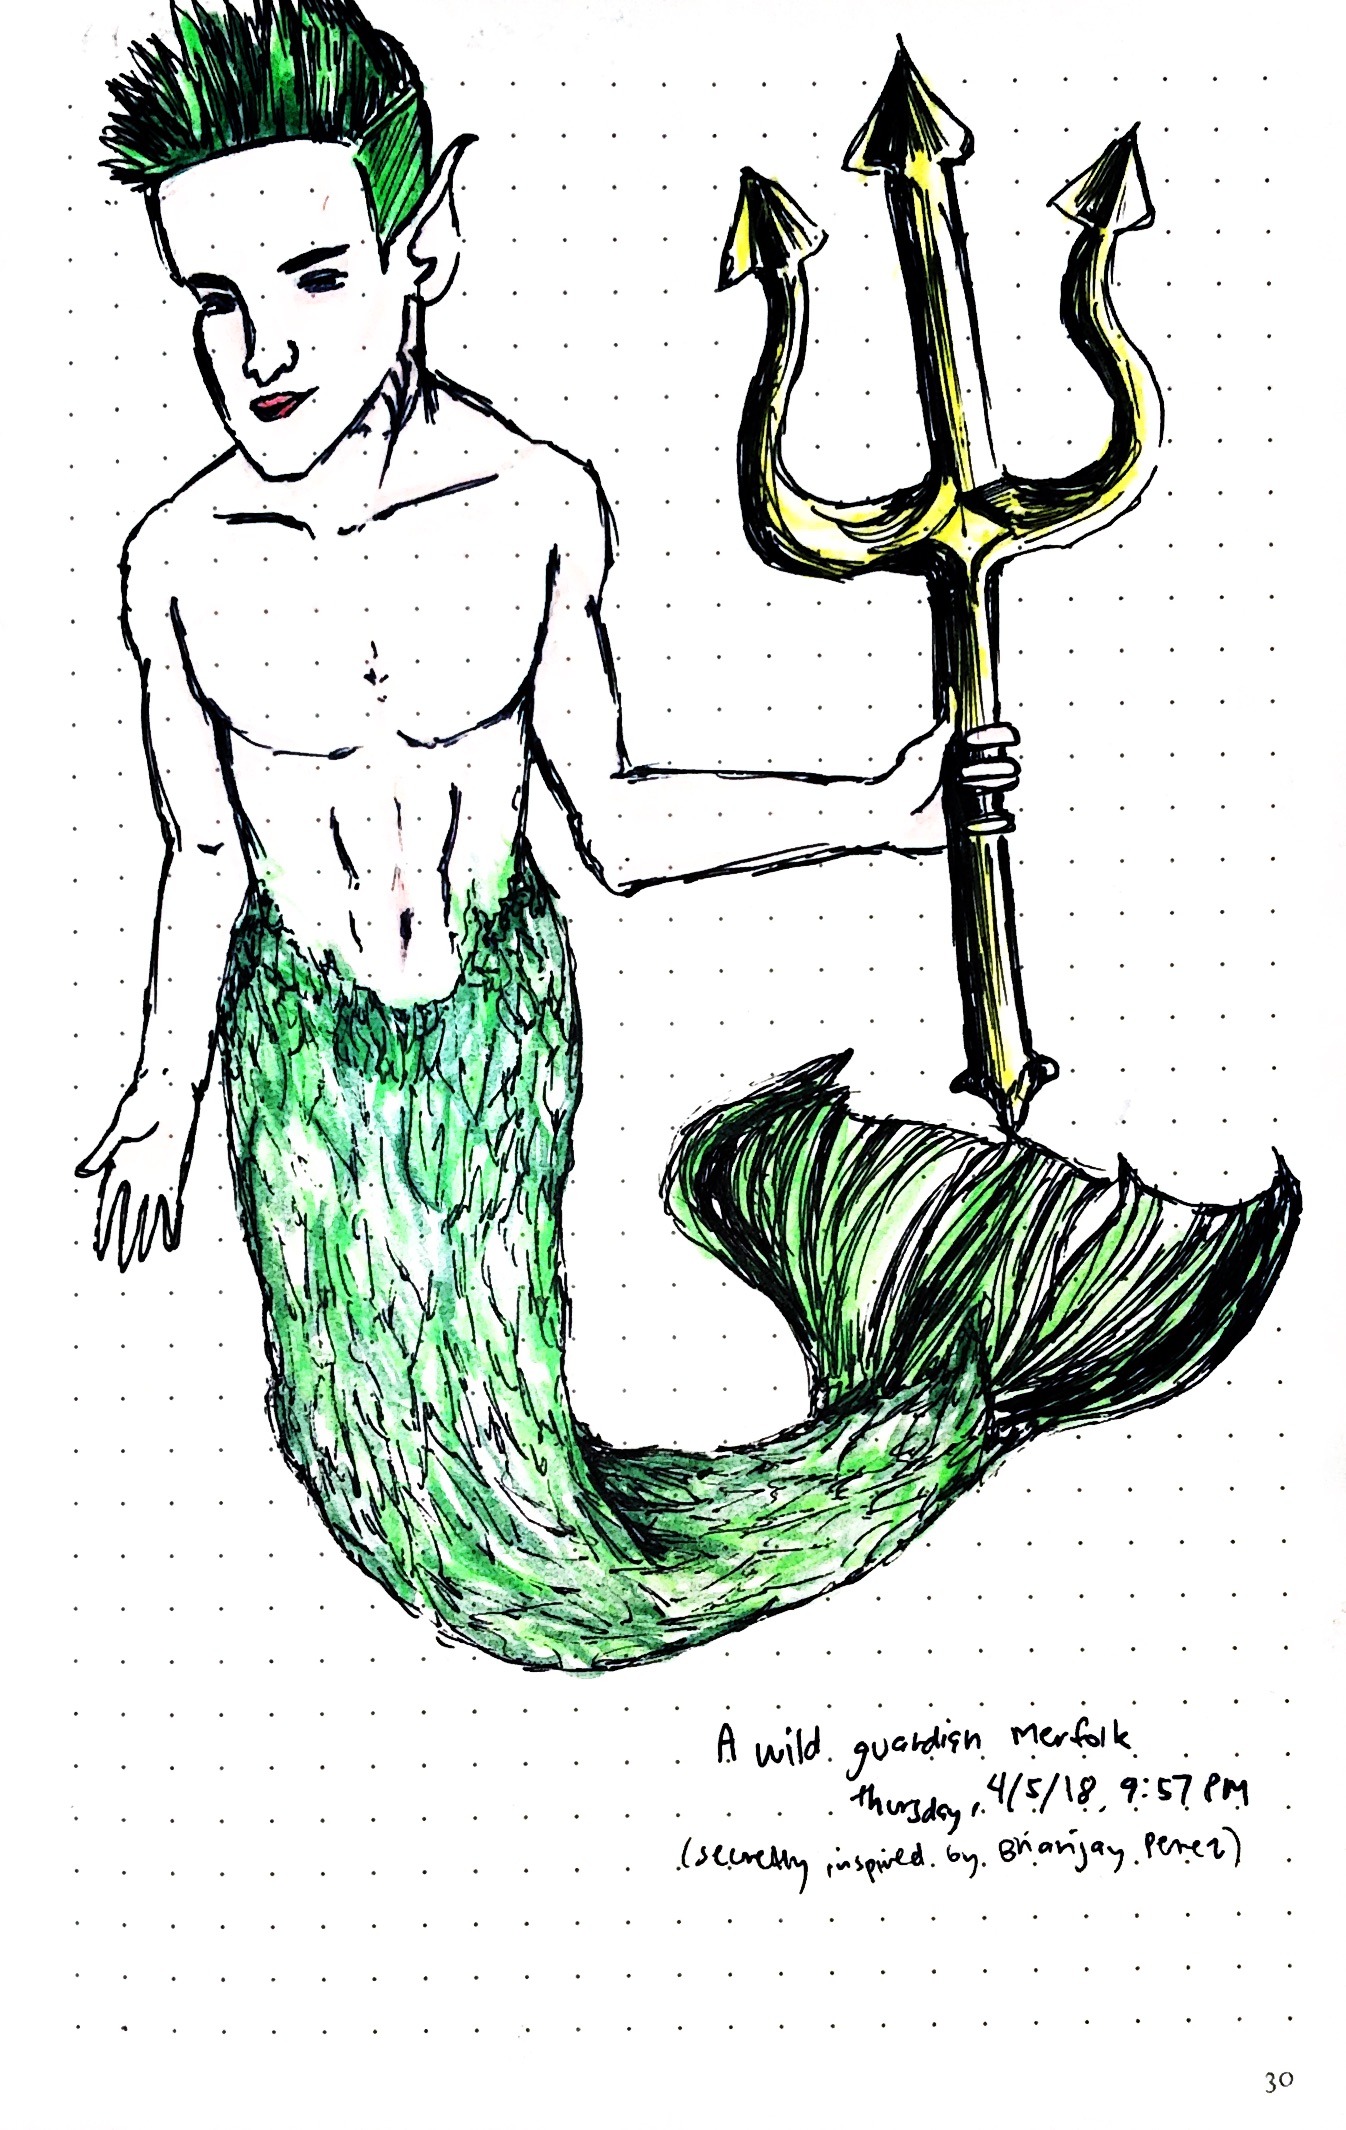 A wild guardian Merfolk
thursday, 4/5/18, 9:57 PM
(secretly inspired by Bhanjay Perez)
30